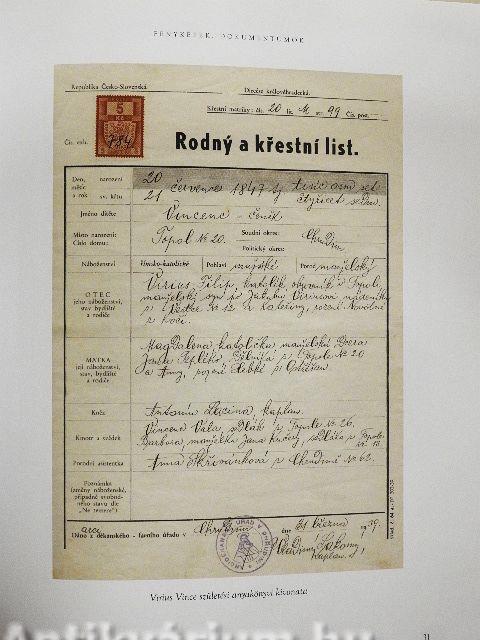 FÉNYKÉPEK, DOKUMENTUMOK
Republika Česko-Slovenská.
Diecése královéhradecká.
Křestní matriky: čís. 20 lit. str. 99 Čís. pos.
5
Kč
Čís. exh. 784
Rodný a křestní list.
Den, měsíc a rok
narození
sv. křtu
20
21 července 1847 tisíc osm set
čtyřicet sedm
Jméno dítěte
Vincenc - Čeněk
Místo narození:
Číslo domu:
Topol No 20.
Soudní okres:
Politický okres:
Chrudim
Náboženství
římsko-katolické
Pohlaví mužské
Porod manželský
OTEC
jeho náboženství,
stav bydliště
a rodiče
Virius Filip, katolík, obyvatel z Topole,
manželský syn po Jakubu Viriusovi
z No 12 a Kateřiny, rozené Novotné
z
MATKA
její náboženství,
stav, bydliště
a rodiče
Magdalena, katolička manželská dcera
Jana Teplého, z Topole No 20
a Anny, rozené z
Kněz
Antonín kaplan.
Kmotr a svědek
Vincenc Vála, sedlák z Topole No 26.
Barbora, manželka Jana sedláka z Topole
No 18.
Porodní asistentka
Anna Skřivánková z Chrudimě No 62.
Poznámka
(změny náboženské,
případně svobodného
stavu dle
"Ne temere")
arci
Dáno z děkanského - farního úřadu v Chrudim
dne 21. března 1939.
Vladimír
kaplan.
Virius Vince születési anyakönyvi kivonata
31
Antikvárium.hu